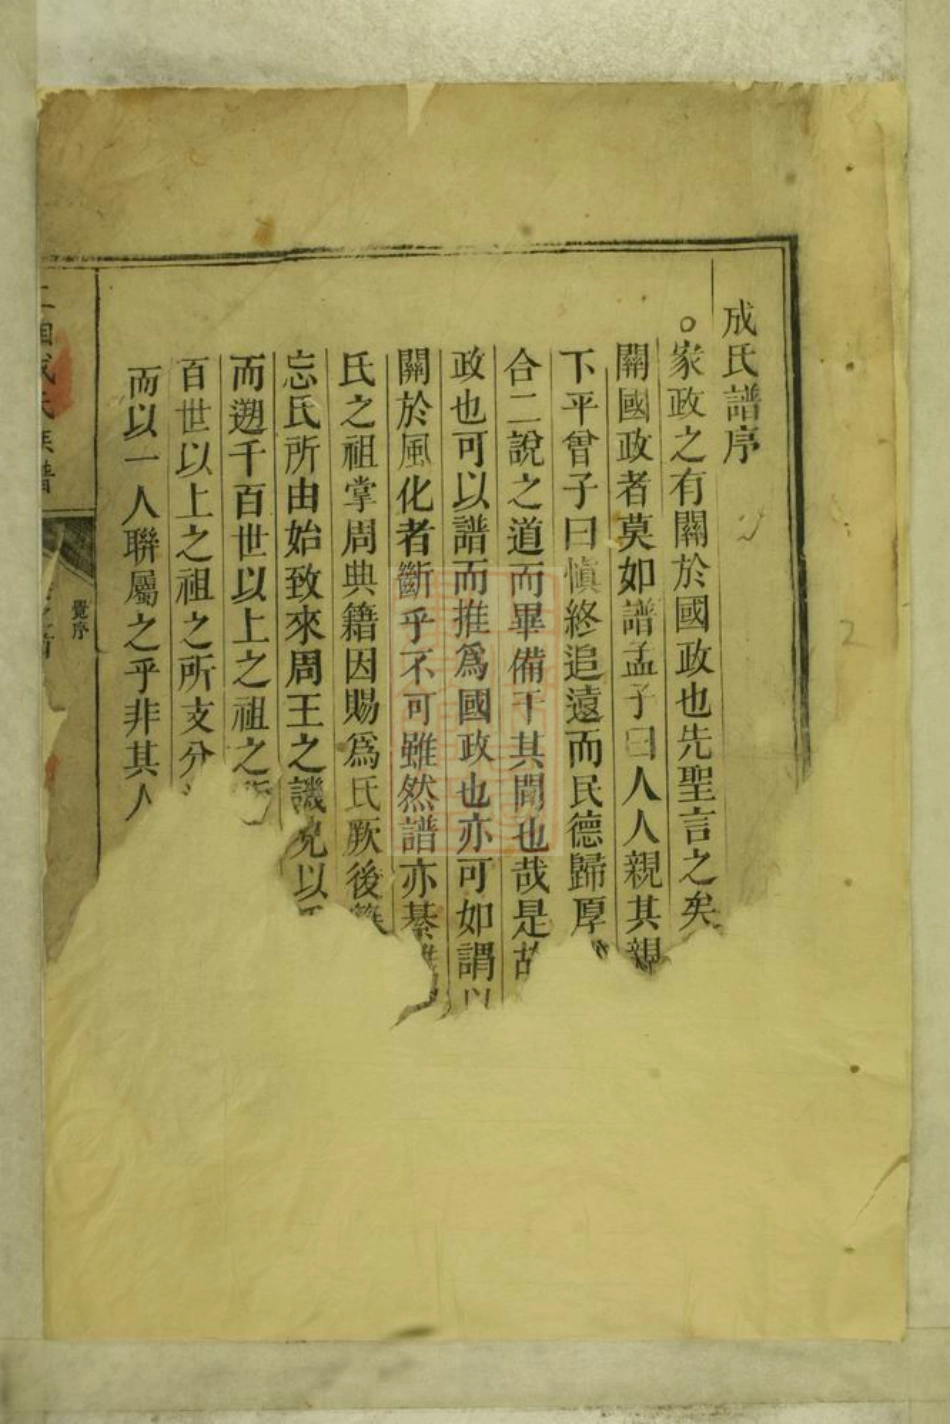 成氏譜序
。家政之有關於國政也先聖言之矣
關國政者莫如譜孟子曰人人親其親
下平曾子曰慎終追遠而民德歸厚
合二說之道而畢備于其間也哉是故
政也可以譜而推為國政也亦可如謂以
關於風化者斷乎不可雖然譜亦綦
氏之祖掌周典籍因賜為氏厥後
忘氏所由始致來周王之譏况以
而遡千百世以上之祖之所
百世以上之祖之所支分
而以一人聯屬之乎非其人
成氏族譜
覺序